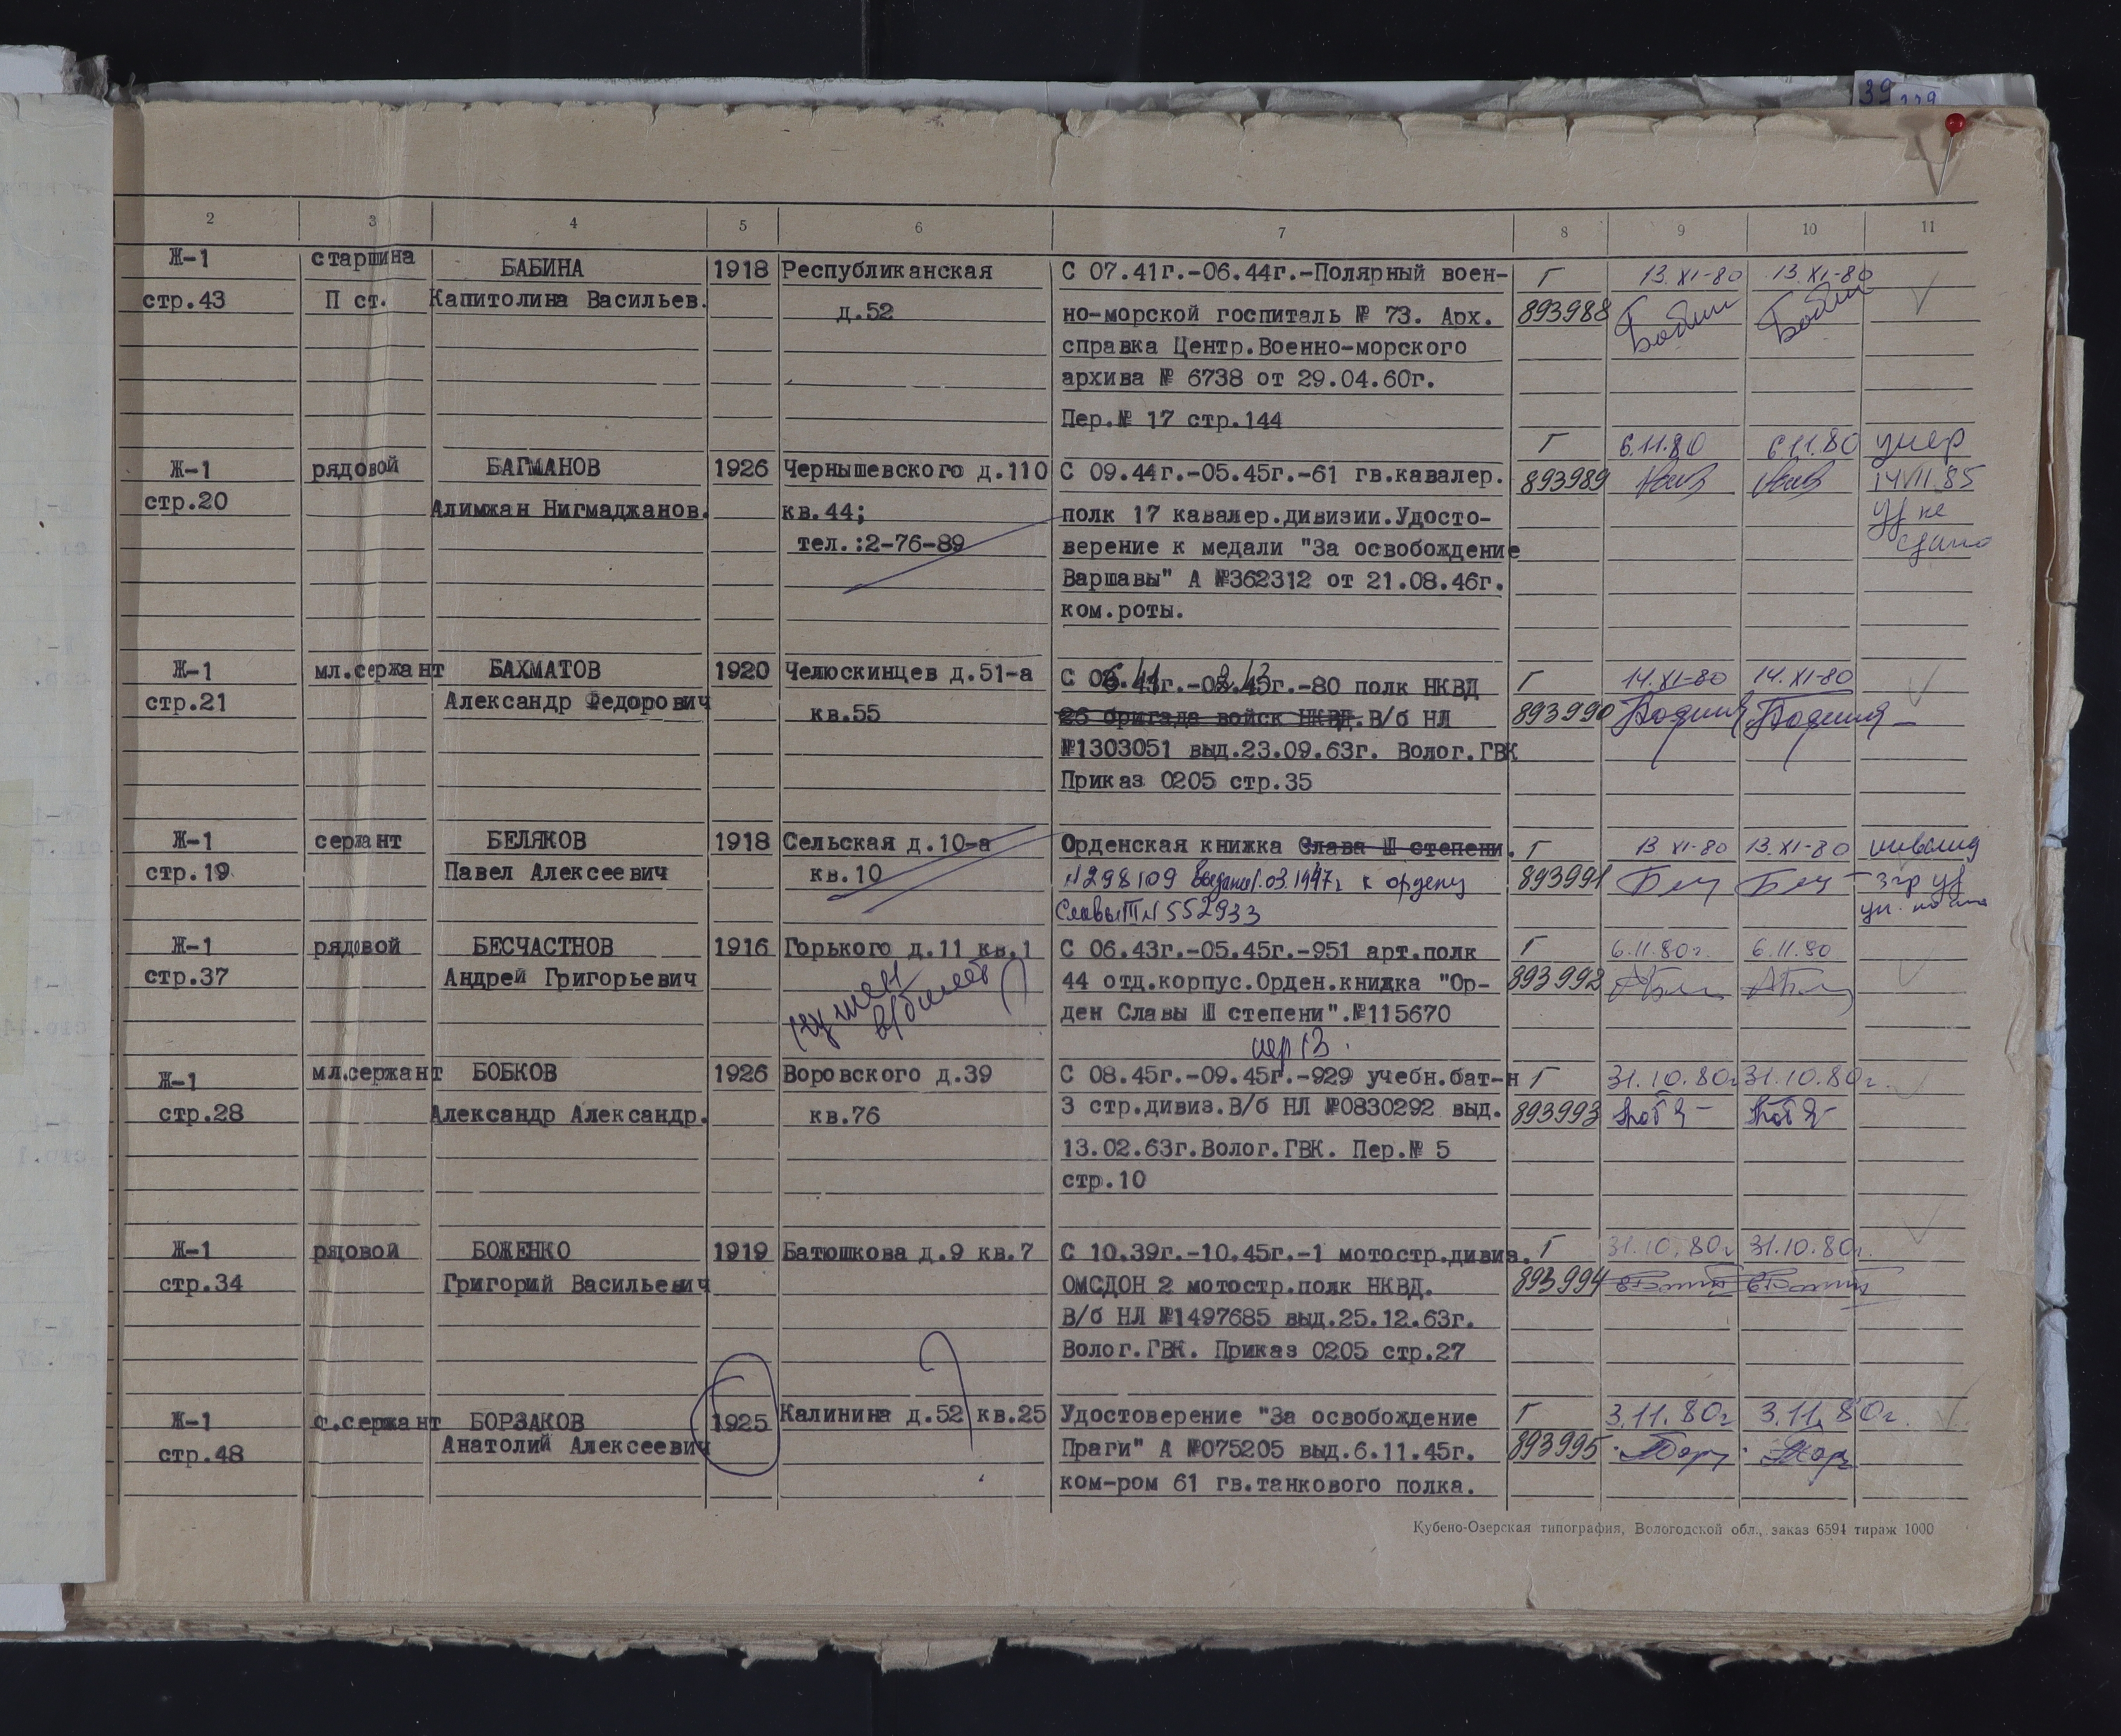 39
2 3 4 5 6 7 8 9 10 11
Ж-1 старшина БАБИНА 1918 Республиканская С 07.41г.-06.44г.-Полярный воен- Г 13.XI-80 13.XI-80
стр.43 П ст. Капитолина Васильев. д.52 но-морской госпиталь № 73. Арх. 893988
справка Центр.Военно-морского
архива № 6738 от 29.04.60г.
Пер.№ 17 стр.144
Г 6.11.80 6.11.80 умер
Ж-1 рядовой БАГМАНОВ 1926 Чернышевского д.110 С 09.44г.-05.45г.-61 гв.кавалер. 893989 14VII.85
стр.20 Алимжан Нигмаджанов. кв.44; полк 17 кавалер.дивизии.Удосто- уд не
тел.:2-76-89 верение к медали "За освобождение сдано
Варшавы" А №362312 от 21.08.46г.
ком.роты.
Ж-1 мл.сержант БАХМАТОВ 1920 Челюскинцев д.51-а С г.- г.-80 полк НКВД Г 14.XI-80 14.XI-80
стр.21 Александр Федорович кв.55 26 бригада войск НКВД.В/б НЛ 893990
№1303051 выд.23.09.63г. Волог.ГВК
Приказ 0205 стр.35
Ж-1 сержант БЕЛЯКОВ 1918 Сельская д.10-а Орденская книжка Слава Ш степени. Г 13 XI-80 13.XI-80 инвалид
стр.19 Павел Алексеевич кв.10 №298109 03.1947г к ордену 893991 3гр уд
Славы III №552933
Ж-1 рядовой БЕСЧАСТНОВ 1916 Горького д.11 кв.1 С 06.43г.-05.45г.-951 арт.полк Г 6.11.80г. 6.11.80
стр.37 Андрей Григорьевич 44 отд.корпус.Орден.книжка "Ор- 893992
в/билет ден Славы Ш степени".№115670
мл.сержант БОБКОВ 1926 Воровского д.39 С 08.45г.-09.45г.-929 учебн.бат-н Г 31.10.80г 31.10.80г.
Ж-1
стр.28 Александр Александр. кв.76 3 стр.дивиз.В/б НЛ №0830292 выд. 893993
13.02.63г.Волог.ГВК. Пер.№ 5
стр.10
Ж-1 рядовой БОЖЕНКО 1919 Батюшкова д.9 кв.7 С 10.39г.-10.45г.-1 мотостр.дивиз. Г 31.10.80г 31.10.80г.
стр.34 Григорий Васильевич ОМСДОН 2 мотостр.полк НКВД. 893994
В/б НЛ №1497685 выд.25.12.63г.
Волог.ГВК. Приказ 0205 стр.27
Ж-1 с.сержант БОРЗАКОВ 1925 Калинина д.52 кв.25 Удостоверение "За освобождение Г 3.11.80г 3.11.80г.
стр.48 Анатолий Алексеевич Праги" А №075205 выд.6.11.45г. 893995
ком-ром 61 гв.танкового полка.
Кубено-Озерская типография, Вологодской обл., заказ 6594 тираж 1000